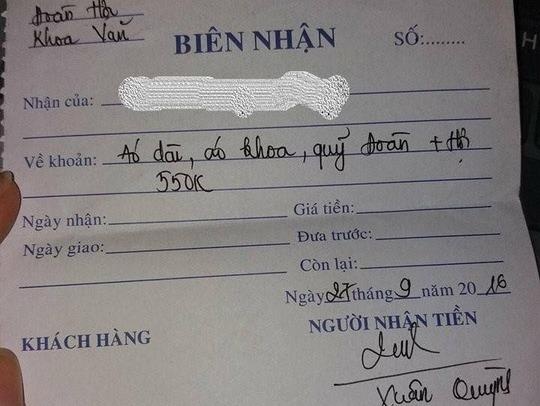 Đoàn Hội
Khoa Văn
BIÊN NHẬN
SỐ:........
Nhận của:
Về khoản: Aó dài, áo khoa, quỹ Đoàn + Hội
550K
Ngày nhận:
Giá tiền:
Ngày giao:
Đưa trước:
Còn lại:
Ngày 27 tháng 9 năm 2016
KHÁCH HÀNG
NGƯỜI NHẬN TIỀN
Xuân Quỳnh